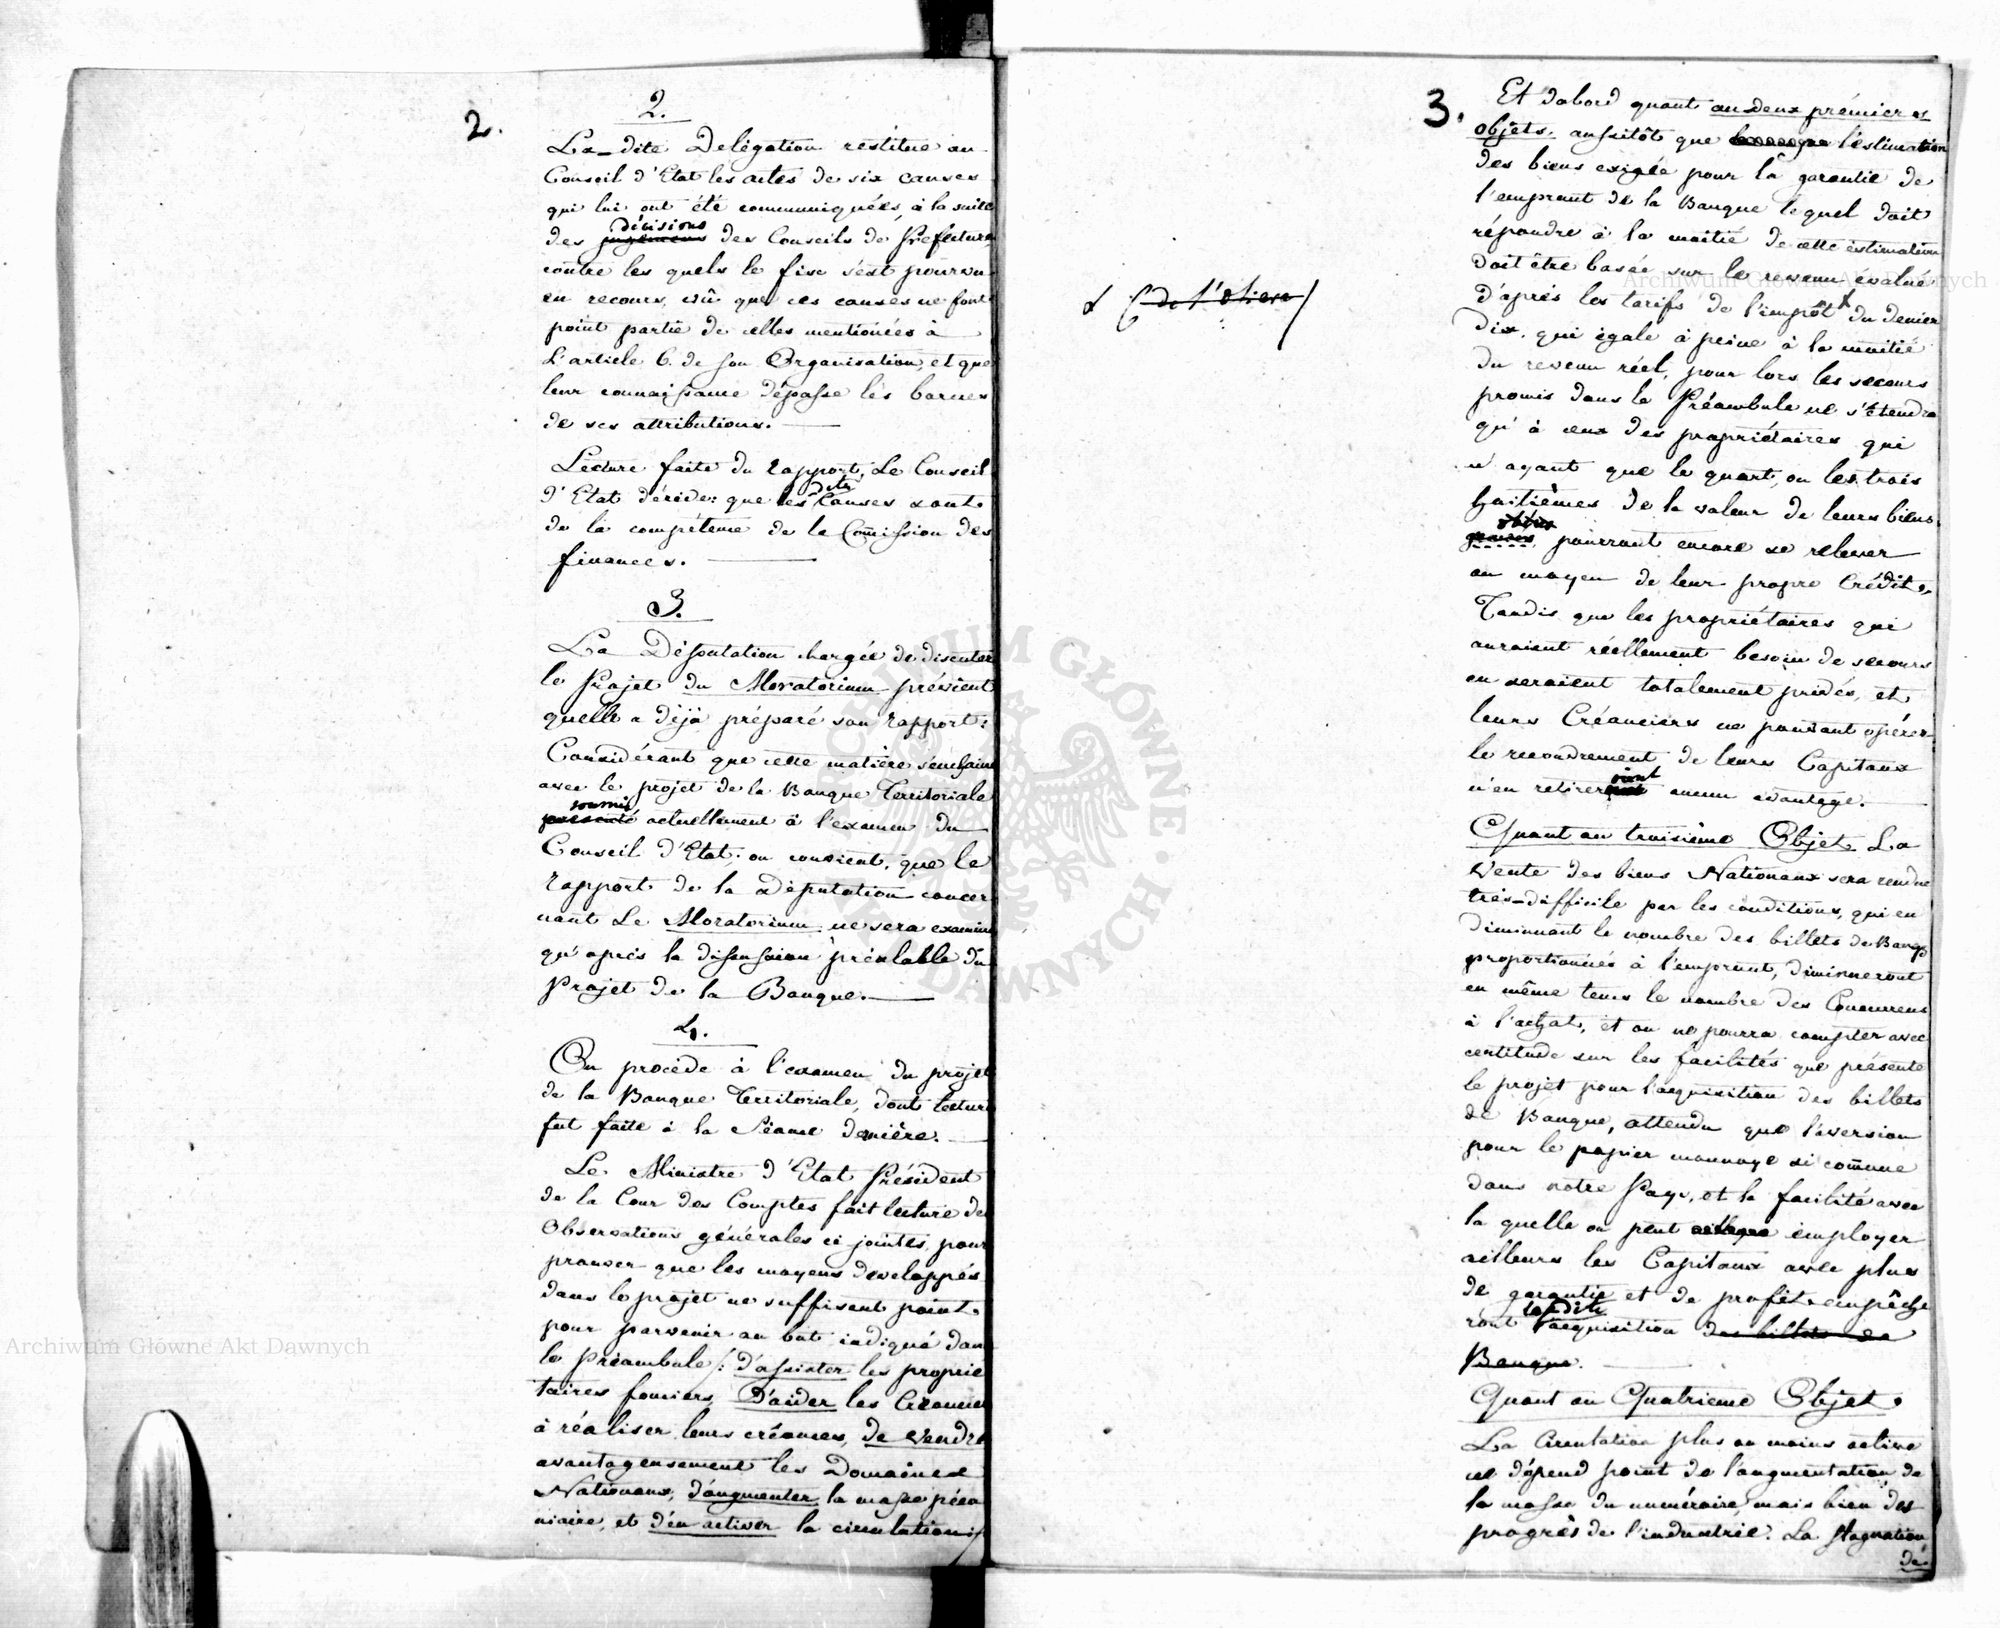 2.
2.
La-dite Délégation restitue au
Conseil d'Etat les actes de six causes
qui lui ont été communiquées, à la suite
décisions
des jugemens des Conseils de Préfecture
contre les quels le fisc s'est pourvu
en recours, vû que ces causes ne font
point partie de celles mentionées à
L'article 6. de son Organisation, et que
leur connaissance dépasse les bornes
de ses attributions.
Lecture faite du rapport, Le Conseil
dites
d'Etat décide: que les Causes sont
de la compétence de la Com̃ission des
finances.
3.
La Députation chargée de discuter
le Projet du Moratorium prévient
quelle a déjà préparé son rapport:
Considérant que cette matière s'enchaine
avec le projet de la Banque Territoriale
soumis
présenté actuellement à l'examen du
Conseil d'Etat; on convient, que le
rapport de la Députation concer
nant Le Moratorium ne sera examiné
qu'après la discussion préalable du
Projet de la Banque.
4.
On procède à l'examen du projet
de la Banque Territoriale, dont lecture
fut faite à la Séance dernière.
Le Ministre d'Etat Président
de la Cour des Comptes fait lecture des
Observations générales ci jointes, pour
prouver que les moyens developpés
dans le projet ne suffisent point
pour parvenir au but indiqué dans
le Préambule /: d'assister les proprié
taires fonciers, D'aider les Créanciers
à réaliser leurs créances, de vendre
avantageusement les Domaines
Nationaux, d'augmenter la masse pécu
niaire, et d'en activer la circulation :/
3.
Et d'abord quant au deux prémiers
objets, aussitôt que l'estimation
des biens exigée pour la garantie de
l'emprunt de la Banque lequel doit
répondre à la moitié de cette estimation
doit être basée sur le revenu évalué
d'après les tarifs de l'impôt du denier
dix, qui égale à peine à la moitié
du revenu réel, pour lors les secours
promis dans le Préambule ne s'étendra
qu'à ceux des propriétaires qui
n'ayant que le quart, ou les trois
huitièmes de la valeur de leurs biens
pourront encore se relever
au moyen de leur propre Crédit,
Tandis que les propriétaires qui
auraient réellement besoin de secours
en seraient totalement privés, et
leurs Créanciers ne pouvant opérer
le recouvrement de leurs Capitaux
n'en retireront aucun avantage.
Quant au troisième Objet. La
Vente des biens Nationaux sera rendue
très-difficile par les conditions, qui en
diminuant le nombre des billets de Banq
proportionnés à l'emprunt, diminueront
en même tems le nombre des Concurrens
à l'achat, et on ne pourra compter avec
certitude sur les facilités que présente
le projet pour l'acquisition des billets
de Banque, attendu que l'aversion
pour le papier monnaye si com̃une
dans notre Pays, et la facilité avec
la quelle on peut employer
ailleurs les Capitaux avec plus
de garantie et de profit empêche
ladite
ront l'acquisition des billets de
Banque.
Quant au Quatrième Objet.
La Circulation plus ou moins active
ne dépend point de l'augmentation de
la masse du numéraire, mais bien des
progrès de l'industrie. La stagnation
de